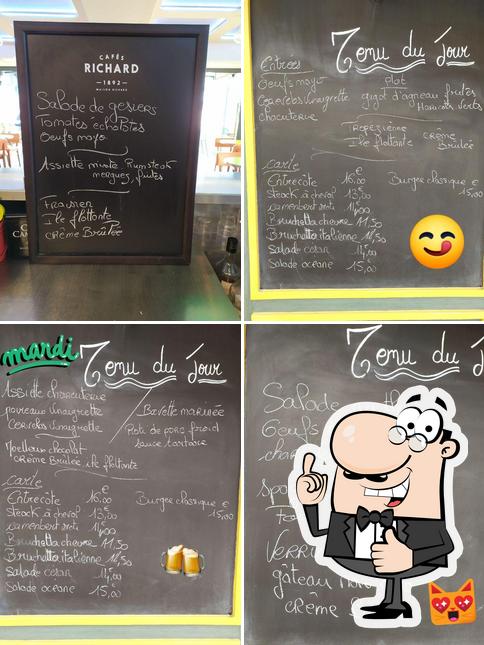 CAFÉS
RICHARD
1892
MAISON RICHARD
Salade de gesiers
Tomates échalotes
Oeufs mayo
Assiette mixte Rumsteak
merguez, frites
Fraisier
Ile flottante
crème Brulée
Menu du Jour
Entrées
Oeufs mayo
Cervelas vinaigrette
charcuterie
plat
gigot d'agneau frites
Haricots verts
Tropezienne crème
Ile flottante Brulée
carte
Entrecôte 16,00
steack à cheval 13,00
camembert roti 14,00
Bruschetta chevre 11,50
Bruchetta italienne 11,50
Salade cesar 14,00
Salade oceane 15,00
Burger classique €
15,00
mardi
Menu du Jour
Assiette charcuterie
poireaux vinaigrette
Cervelas vinaigrette
Bavette marinée
Roti de porc froid
sauce tartare
Moelleux chocolat
crème Brulée ile flottante
carte
Entrecôte 16,00
steack à cheval 13,00
camembert roti 14,00
Bruschetta chevre 11,50
Bruchetta italienne 11,50
Salade cesar 14,00
Salade oceane 15,00
Burger classique €
15,00
Menu du J
Salade
Oeufs
gâteau
crème